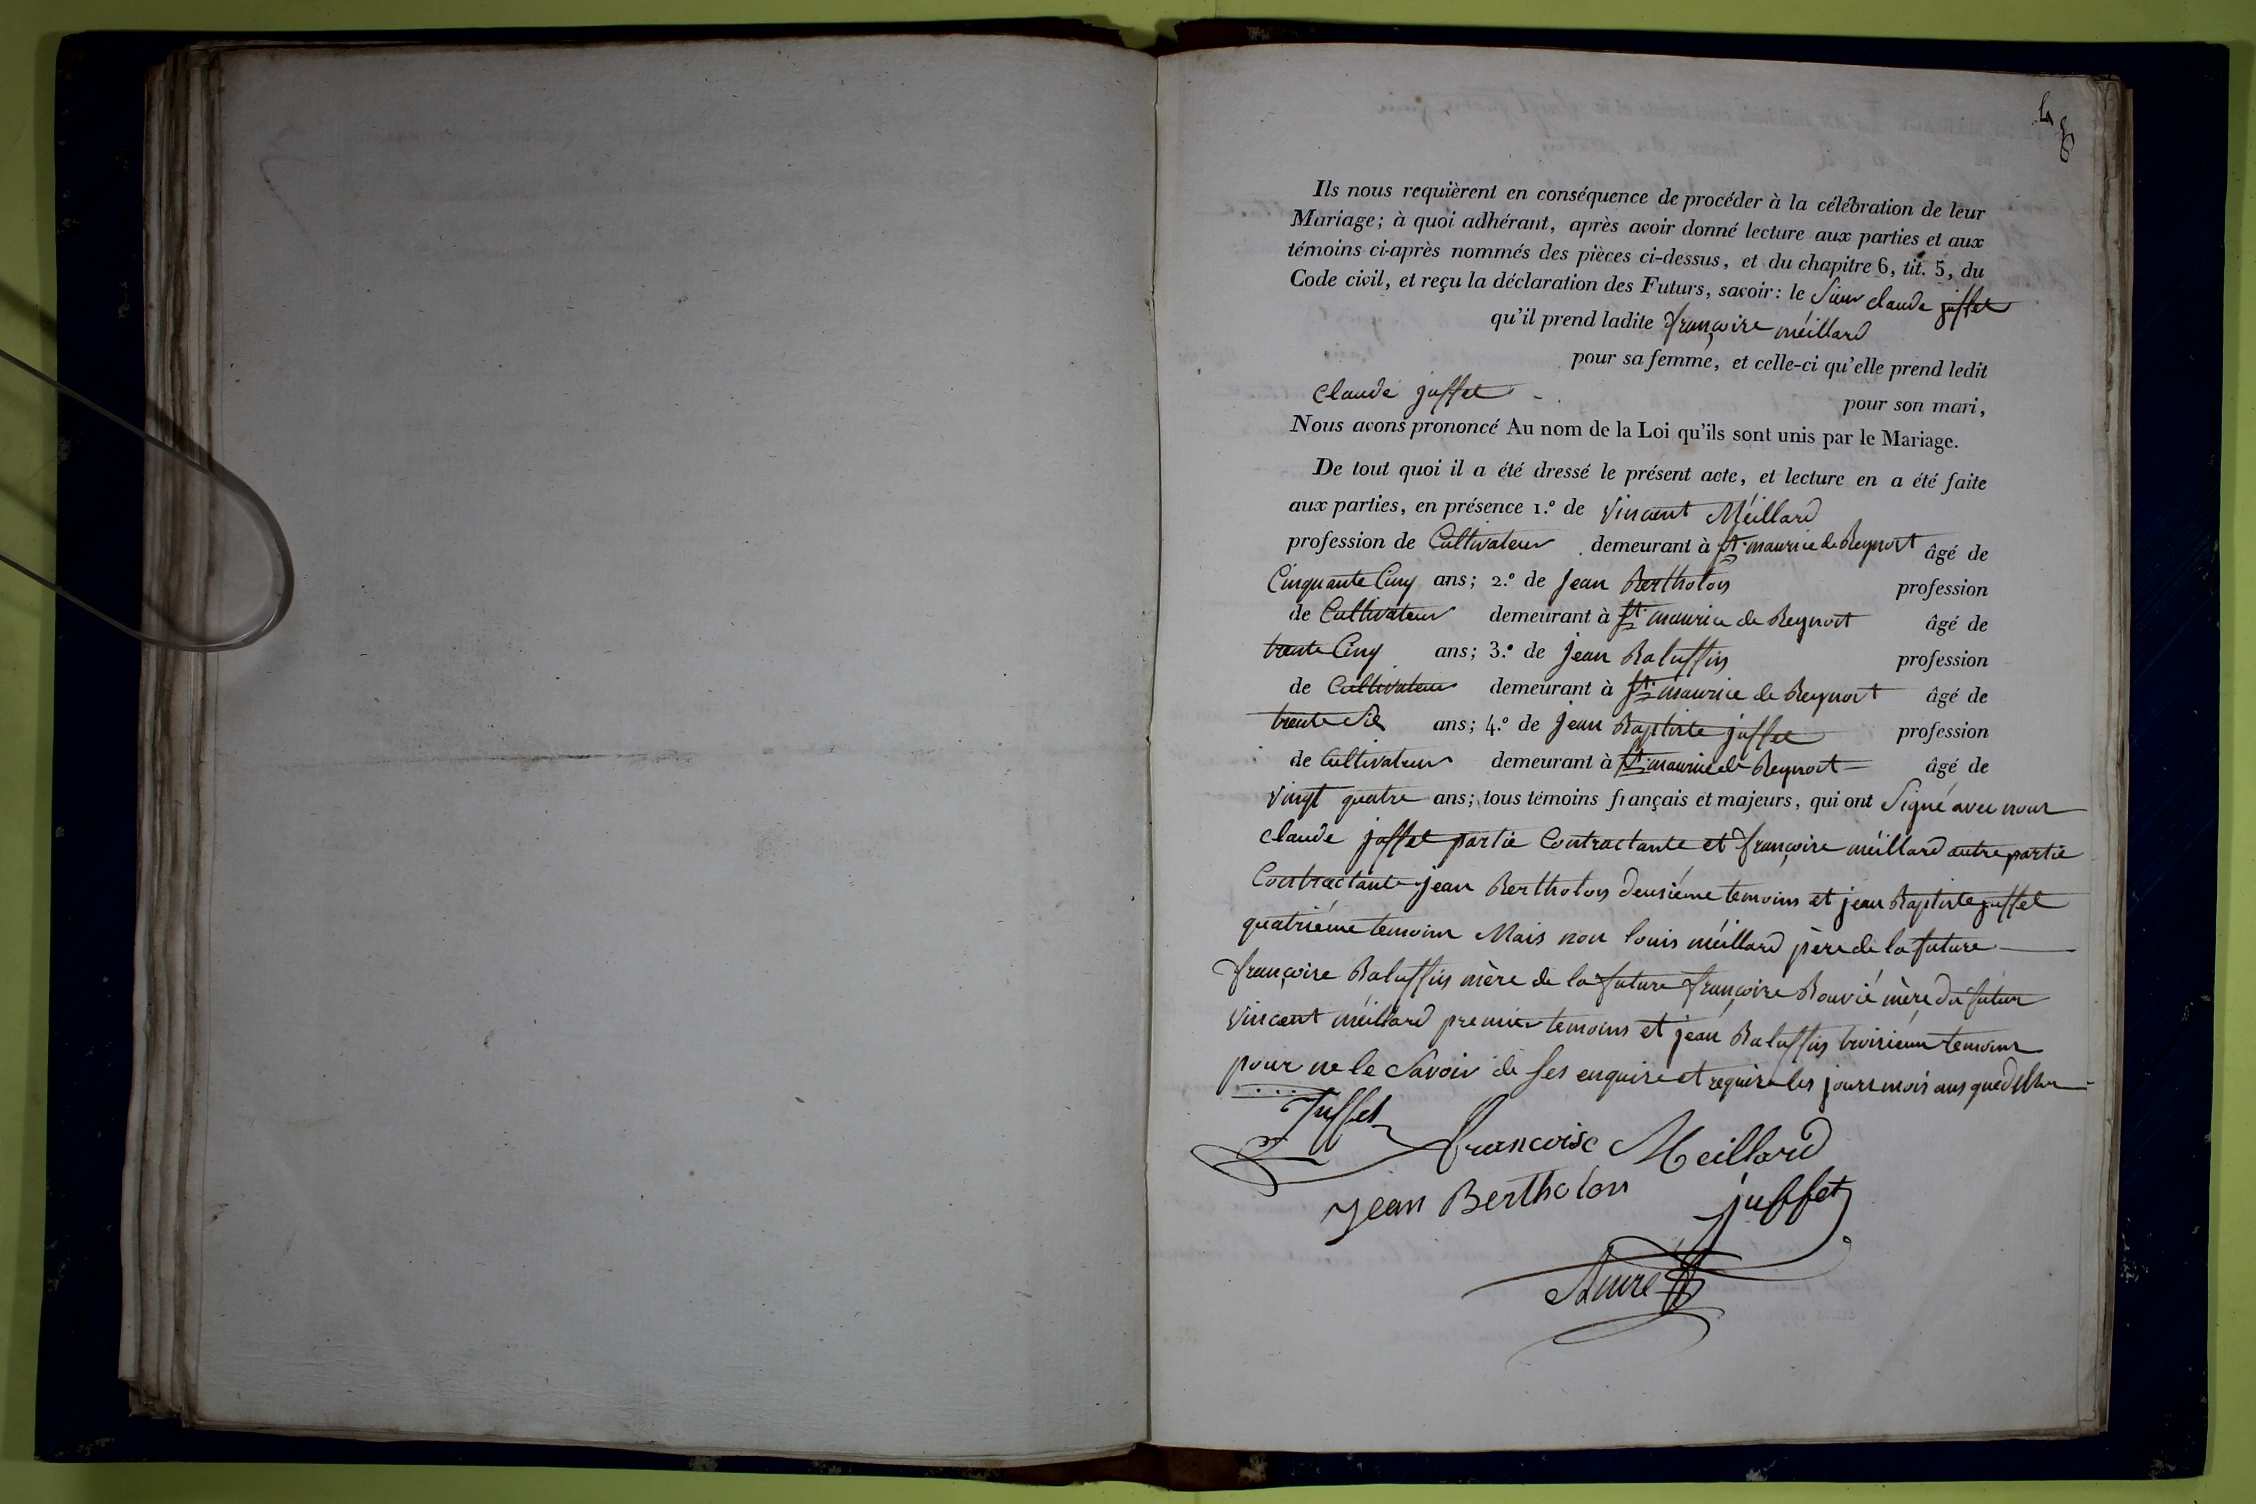 Ils nous requièrent en conséquence de procéder à la célébration de leur
Mariage; à quoi adhérant, après avoir donné lecture aux parties et aux
témoins ci-après nommés des pièces ci-dessus, et du chapitre 6, tit. 5, du
Code civil, et reçu la déclaration des Futurs, savoir: le Sieur claude juffet
qu'il prend ladite françoise méillard
pour sa femme, et celle-ci qu'elle prend ledit
Claude juffet pour son mari,
Nous avons prononcé Au nom de la Loi qu'ils sont unis par le Mariage.
De tout quoi il a été dressé le présent acte, et lecture en a été faite
aux parties, en présence 1.º de Vincent Méillard
profession de Cultivateur demeurant à St. maurice de Beynost âgé de
Cinquante Cinq ans; 2.º de Jean Bertholon profession
de Cultivateur demeurant à St. maurice de Beynost âgé de
trente Cinq ans; 3.º de Jean Baluffin profession
de Cultivateur demeurant à St. maurice de Beynost âgé de
trente Six ans; 4.º de Jean Baptiste juffet profession
de Cultivateur demeurant à St. maurice de Beynost âgé de
Vingt quatre ans; tous témoins français et majeurs, qui ont Signé avec nous
claude juffet partie Contractante et françoise méillard autre partie
Contractante jean Bertholon deusiéme temoins et jean Baptiste juffet
quatriéme temoins Mais non louis méillard père de la future
françoise Baluffin mère de la future françoise Bouvié mère du futur
Vincent méillard premier temoins et jean Baluffin troisieme temoins
pour ne le Savoir de ses enquire et require les jours mois ans que dessus
Juffet
francoise Meillard
Jean Bertholon
juffet